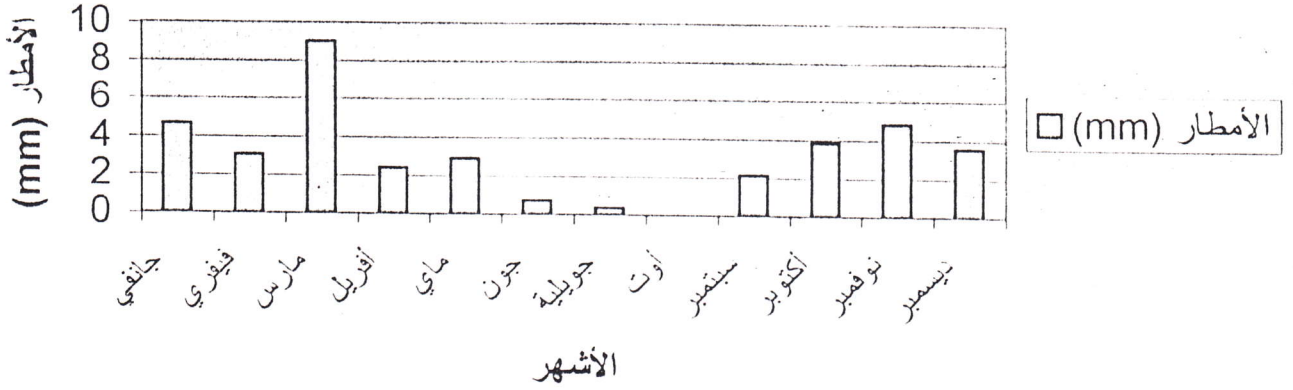 الأمطار (mm)
10
8
6
4
2
0
جانفي
فيفري
مارس
أفريل
ماي
جون
جويلية
أوت
سبتمبر
أكتوبر
نوفمبر
ديسمبر
الأشهر
الأمطار (mm)